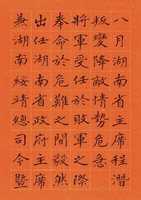 八月湖南省主席程潛
叛變降敵情勢危急
將軍受任於敗軍之際
奉命於危難之間毅然
出任湖南省政府主席
兼湖南綏靖總司令暨